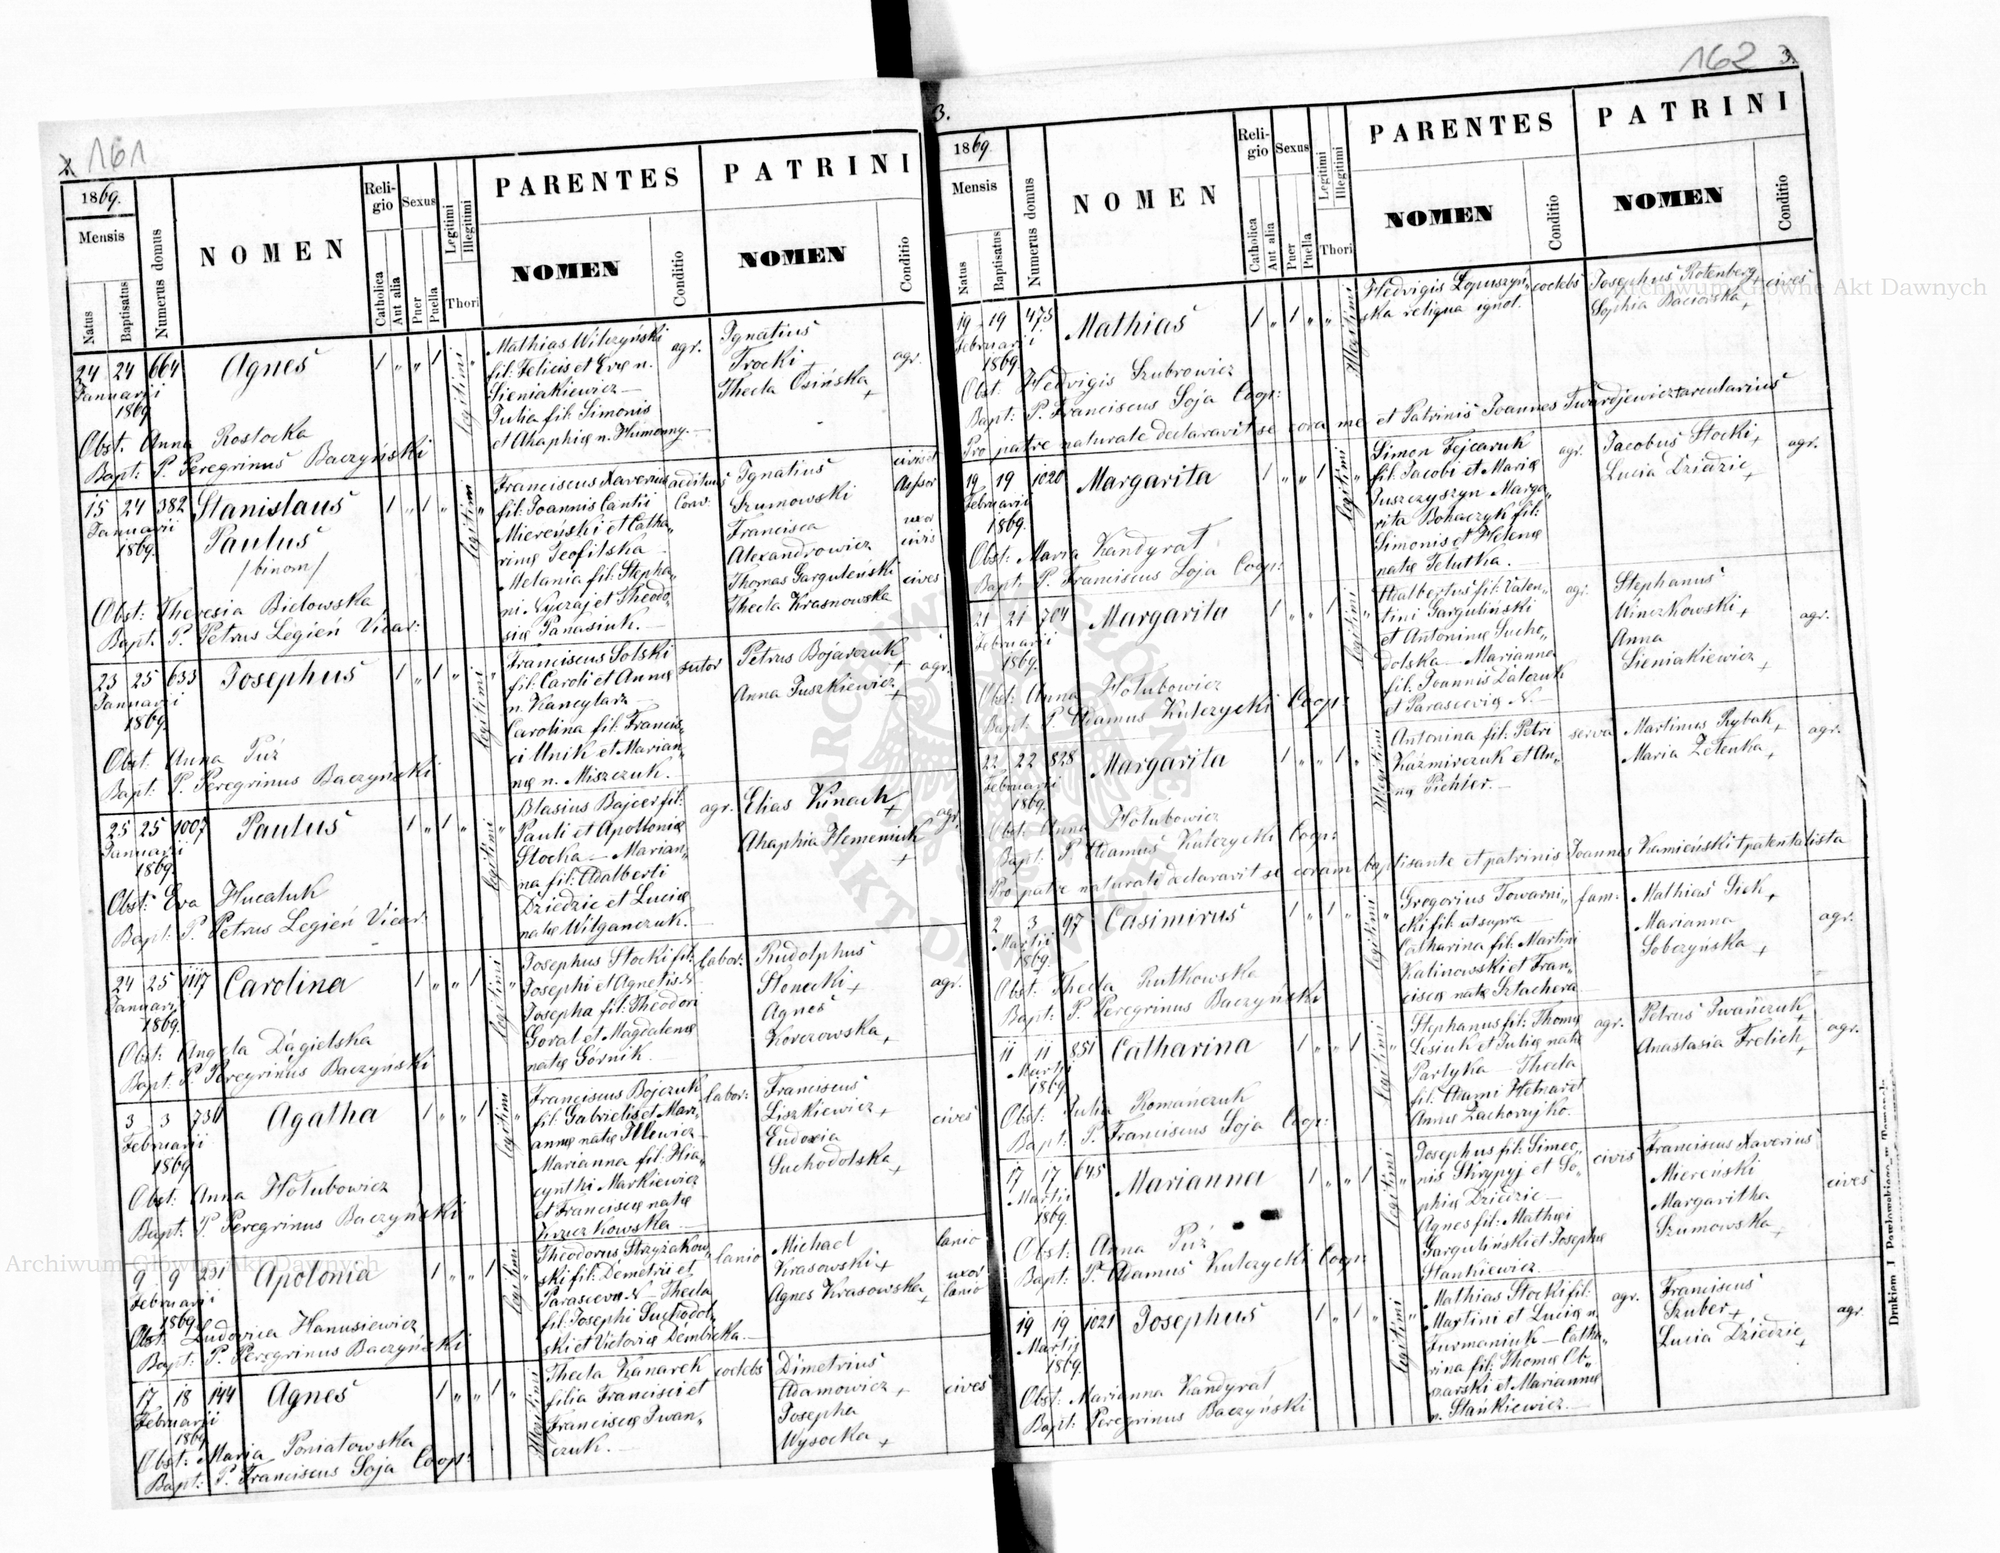 2. 161
1869.
Mensis
Natus
Baptisatus
Numerus domus
NOMEN
Religio
Catholica
Aut alia
Sexus
Puer
Puella
Legitimi
Illegitimi
Thori
PARENTES
NOMEN
Conditio
PATRINI
NOMEN
Conditio
24 24 664 Agnes 1 „ „ 1 legitimi „
Januarii
1869
Mathias Wilczyński agr.
fil: Felicis et Evæ n.
Sieniakiewicz —
Julia fil: Simonis
et Ahaphiæ n. Humenny. —
Ignatius
Trocki + agr.
Thecla Osińska +
Obst. Anna Rostocka
Bapt: P. Peregrinus Baczyński
15 24 382 Stanislaus 1 „ 1 „ legitimi „
Januarii Paulus
1869. /binom/
Franciscus Xaverius aedituus
fil: Joannis Cantii Conv.
Miereński et Catha„
rinæ Teofilska
Melania fil: Stepha„
ni Nyczaj et Theodo„
siæ Panasiuk. —
Ignatius civis et
Szumowski Assessor
Francisca uxor
Alexandrowicz civis
Thomas Garguleński cives
Thecla Krasnowska
Obst: Theresia Bielowska
Bapt: P. Petrus Legień Vicar:
23 25 633 Josephus 1 „ 1 „ legitimi „
Januarii
1869.
Franciscus Solski sutor
fil: Caroli et Annæ
n. Kancylarz
Carolina fil: Francis„
ci Unik et Marian„
næ n. Miszczuk. —
Petrus Bojarczuk + agr.
Anna Juszkiewicz +
Obst. Anna Púź
Bapt: P. Peregrinus Baczyński
25 25 1007 Paulus 1 „ 1 „ legitimi „
Januarii
1869.
Blasius Bajcer fil: agr.
Pauli et Apolloniæ
Stocka — Marian„
na fil: Adalberti
Dziedzic et Luciæ
natæ Wilganczuk. —
Elias Kinach + agr.
Ahaphia Hemeniuk +
Obst: Eva Hucaluk
Bapt: P. Petrus Legień Vicar:
24 25 1117 Carolina 1 „ „ 1 legitimi „
Januarii
1869.
Josephus Stocki fil: labor:
Josephi et Agnetis N.
Josepha fil: Theodori
Goral et Magdalenæ
natæ Górnik.
Rudolphus
Slonecki + agr.
Agnes
Korczowska +
Obst: Angela Dągielska
Bapt: P. Peregrinus Baczyński
3 3 736 Agatha 1 „ „ 1 legitimi „
Februarii
1869
Franciscus Bojczuk labor:
fil: Gabrielis et Mari„
annæ natæ Illewicz
Marianna fil: Hia„
cynthi Markiewicz
et Franciscæ natæ
Krzeczkowska
Franciscus
Liszkiewicz + cives
Eudoxia
Suchodolska +
Obst. Anna Hołubowicz
Bapt: P. Peregrinus Baczyński
9 9 231 Apolonia 1 „ „ 1 legitimi „
Februarii
1869
Theodorus Strzyżakow„ lanio
ski fil: Demetrii et
Parascevæ N — Thecla
fil: Josephi Suchodol„
ski et Victoriæ Dembicka. —
Michael lanio
Krasowski +
Agnes Krasowska + uxor lanio
Obst. Ludovica Hanusiewicz
Bapt: P. Peregrinus Baczyński
17 18 144 Agnes 1 „ „ 1 „ Illegitimi
Februarii
1869
Thecla Kanarek coelebs
filia Francisci et
Franciscæ Iwan„
czuk. —
Dimetrius
Adamowicz + cives
Josepha
Wysocka +
Obst: Maria Poniatowska
Bapt: P. Franciscus Soja Coop:
162 3.
3.
1869.
Mensis
Natus
Baptisatus
Numerus domus
NOMEN
Religio
Catholica
Aut alia
Sexus
Puer
Puella
Legitimi
Illegitimi
Thori
PARENTES
NOMEN
Conditio
PATRINI
NOMEN
Conditio
19 19 475 Mathias 1 „ 1 „ „ Illegitimi
Februarii
1869
Hedvigis Łopuszyń„ coelebs
ska reliqua ignot.
Josephus Rotenberg + cives
Sophia Baciorska +
Obst. Hedvigis Szubrowicz
Bapt: P. Franciscus Soja Coop:
Pro patre naturale declaravit se coram me et Patrinis Joannes Twardijewicz + arcularius
19 19 1020 Margarita 1 „ „ 1 legitimi „
Februarii
1869.
Simon Fejcaruk agr.
fil: Jacobi et Mariæ
Puszczyszyn Marga„
rita Bohaczyk fil:
Simonis et Helenæ
natæ Felutka. —
Jacobus Stocki + agr.
Lucia Dziedzic +
Obst: Maria Kandyrał
Bapt: P. Franciscus Soja Coop:
21 21 704 Margarita 1 „ „ 1 legitimi „
Februarii
1869.
Adalbertus fil: Valen„ agr.
tini Garguliński
et Antoninæ Sucho„
dolska — Marianna
fil: Joannis Zalozuk
et Parascevia N. —
Stephanus
Winczkowski + agr.
Anna
Sieniakiewicz +
Obst: Anna Hołubowicz
Bapt: P. Adamus Kulczycki Coop:
22 22 828 Margarita 1 „ „ 1 „ Illegitimi
Februarii
1869.
Antonina fil: Petri serva
Kaźmirczuk et An„
næ Pichler. —
Martinus Rybak + agr.
Maria Zelenka +
Obst: Anna Hołubowicz
Bapt: P. Adamus Kulczycki Coop:
Pro patre naturali declaravit se coram baptisante et patrinis Joannes Kamieński + patentalista
2 3 97 Casimirus 1 „ 1 „ legitimi „
Martii
1869.
Gregorius Towarni„ fam:
cki fil: ut supra —
Catharina fil: Martini
Kalinowski et Fran„
ciscæ natæ Sztachera. —
Mathias Siek +
Marianna agr.
Sobczyńska +
Obst. Thecla Rutkowska
Bapt: P. Peregrinus Baczyński
11 11 851 Catharina 1 „ „ 1 legitimi „
Martii
1869.
Stephanus fil: Thomæ agr.
Lesiuk et Juliæ natæ
Partyka — Thecla
fil: Adami Helnaret
Annæ Zachorzyjko.
Petrus Iwańczuk + agr.
Anastasia Frelich +
Obst: Julia Romańczuk
Bapt: P. Franciscus Soja Coop:
17 17 645 Marianna 1 „ „ 1 legitimi „
Martii
1869.
Josephus fil: Simeo„ civis
nis Skrypyj et So„
phiæ Dziedzic —
Agnes fil: Mathæi
Garguliński et Josephæ
Stankiewicz. —
Franciscus Xaverius
Miereński cives
Margaritha
Szumowska +
Obst: Anna Púź
Bapt: P. Adamus Kulczycki Coop:
19 19 1021 Josephus 1 „ 1 „ legitimi „
Martii
1869.
Mathias Stocki fil: agr.
Martini et Luciæ n.
Furmaniuk — Catha„
rina fil: Thomæ Ol„
szarski et Mariannæ
n. Stańkiewicz. —
Franciscus
Szuber + agr.
Lucia Dziedzic +
Obst: Marianna Kandyrał
Bapt: Peregrinus Baczyński
Drukiem J. Pawłowskiego w Tarnopolu
Archiwum Główne Akt Dawnych
Archiwum Główne Akt Dawnych
ARCHIWUM GŁÓWNE AKT DAWNYCH